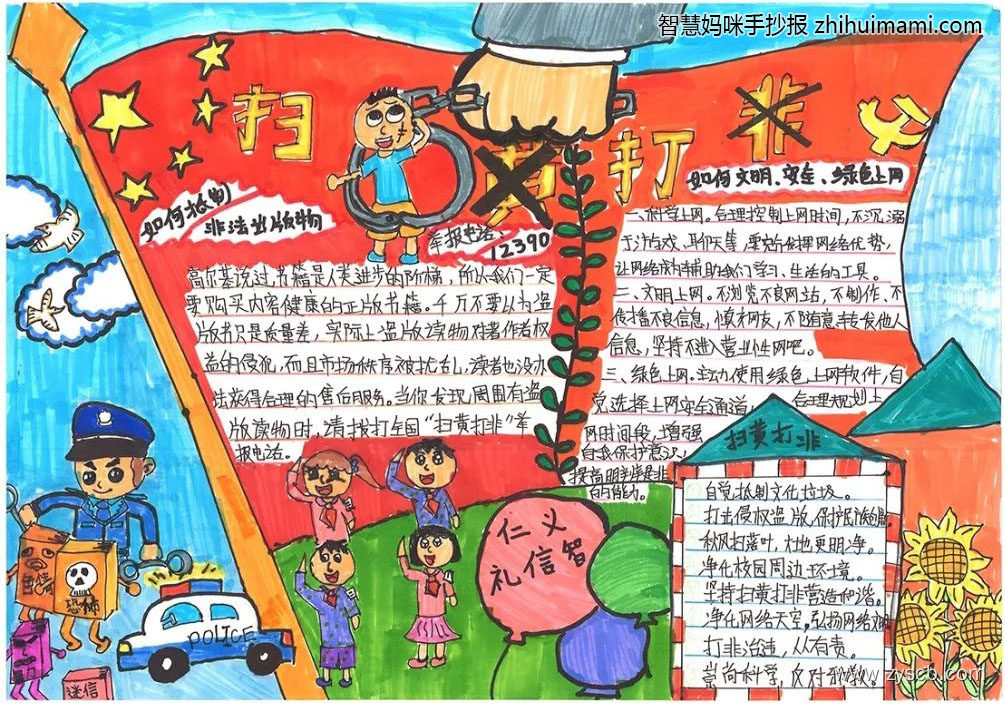 智慧妈咪手抄报 zhihuimami.com
扫黄打非
如何抵制
非法出版物
举报电话:
12390
高尔基说过,书籍是人类进步的阶梯,所以我们一定
要购买内容健康的正版书籍。千万不要以为盗
版书只是质量差,实际上盗版读物对著作者权
益的侵犯,而且市场秩序被扰乱,读者也没办
法获得合理的售后服务。当你发现周围有盗
版读物时,请拨打全国“扫黄打非”举
报电话。
如何文明、安全、绿色上网
一、科学上网。合理控制上网时间,不沉溺
于游戏、聊天等,要充分发挥网络优势,
让网络成为辅助我们学习、生活的工具。
二、文明上网。不浏览不良网站,不制作、不
传播不良信息,慎才网友,不随意转发他人
信息,坚持不进入营业性网吧。
三、绿色上网。主动使用绿色上网软件,自
觉选择上网安全通道,合理规划上
网时间段,增强
自我保护意识,
提高明辨是非
的能力。
扫黄打非
自觉抵制文化垃圾。
打击侵权盗版,保护民族
秋风扫落叶,大地更明净。
净化校园周边环境。
坚持扫黄打非营造和谐。
净化网络天空,弘扬网络文
打非治违,人人有责。
崇尚科学,反对邪教。
仁义
礼信智
色情
恐怖
迷信
POLICE
www.zyscb.com